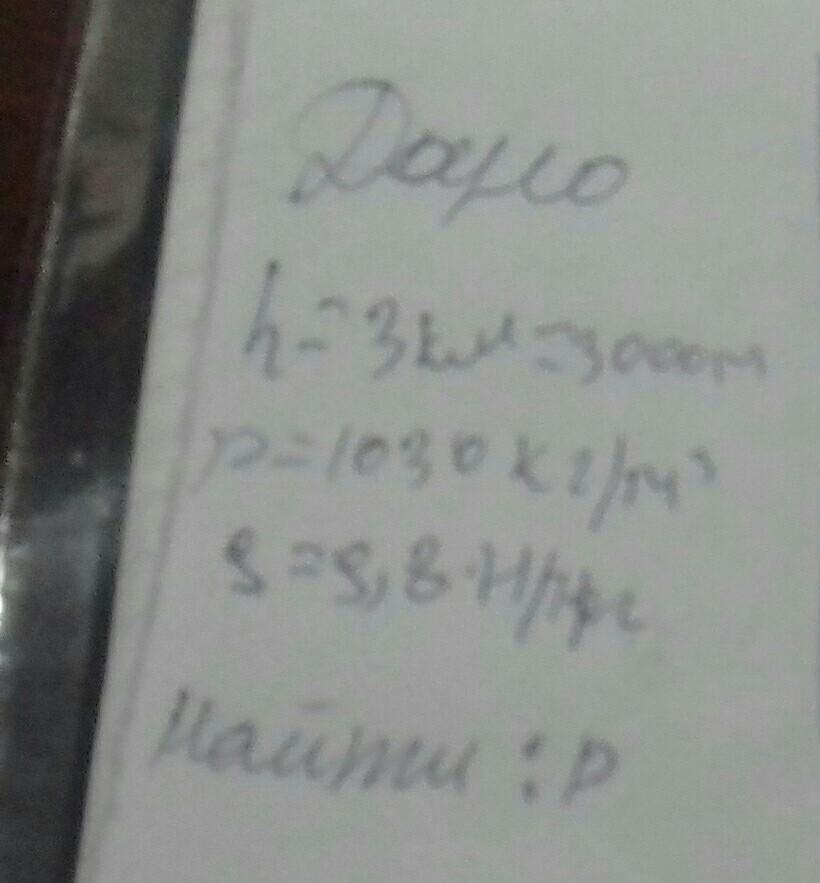 Дано
h=3км=3000м
p=1030 кг/м³
g=9,8 Н/кг
Найти: p